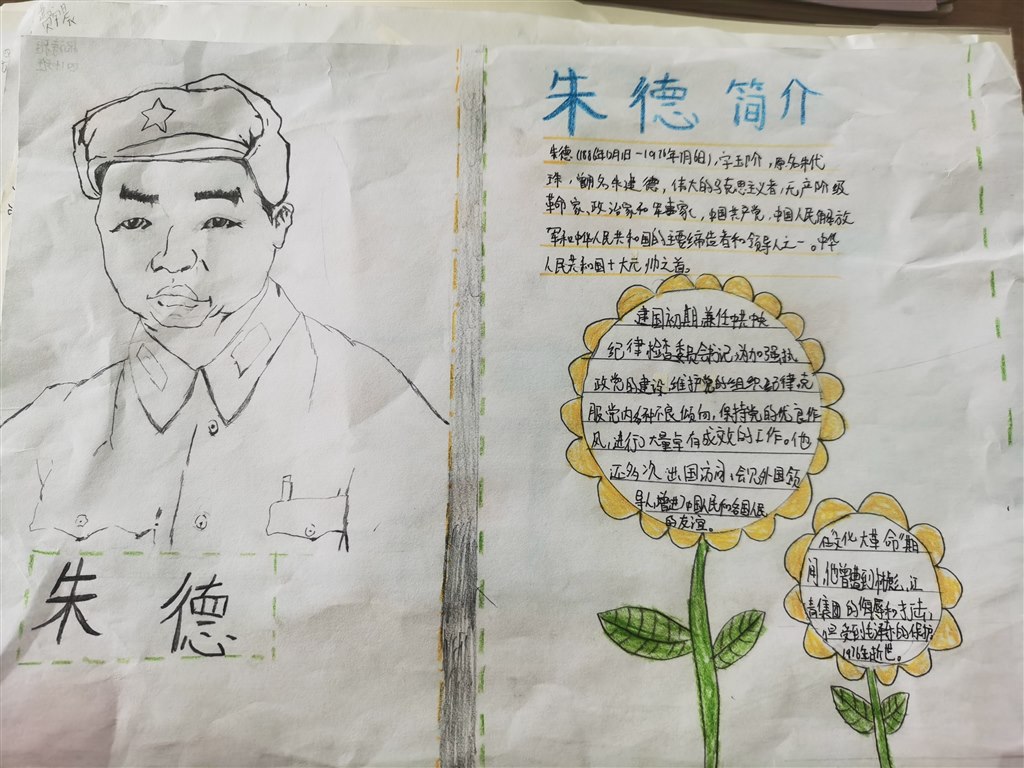 朱德
朱德简介
朱德(1886年12月1日-1976年7月6日),字玉阶,原名朱代
珍,曾用名朱建德,伟大的马克思主义者,无产阶级
革命家、政治家和军事家,中国共产党,中国人民解放
军和中华人民共和国的主要缔造者和领导人之一。中华
人民共和国十大元帅之首。
建国初期兼任中共中央
纪律检查委员会书记,为加强执
政党的建设,维护党的组织纪律,克
服党内各种不良倾向,保持党的优良作
风,进行了大量卓有成效的工作。他
还多次出国访问,会见外国领
导人,增进中国人民和各国人民
的友谊。
在"文化大革命"期
间,他曾遭到林彪、江
青集团的侮辱和打击,
但受到毛泽东的保护
1976年逝世。